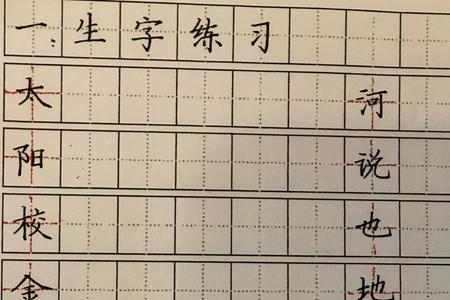 一:生字练习
太 河
阳 说
校 也
金 地